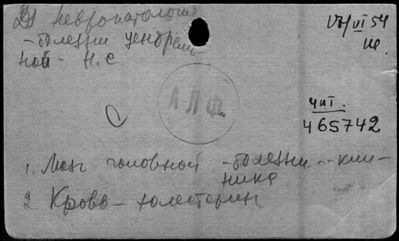 Невропатология
-болезни централь-
ной- Н.С.
VI/54
АЛФ
чит.
465742
1. Мозг головной -болезни -- кли-
ника
2 Кровь - холестерин